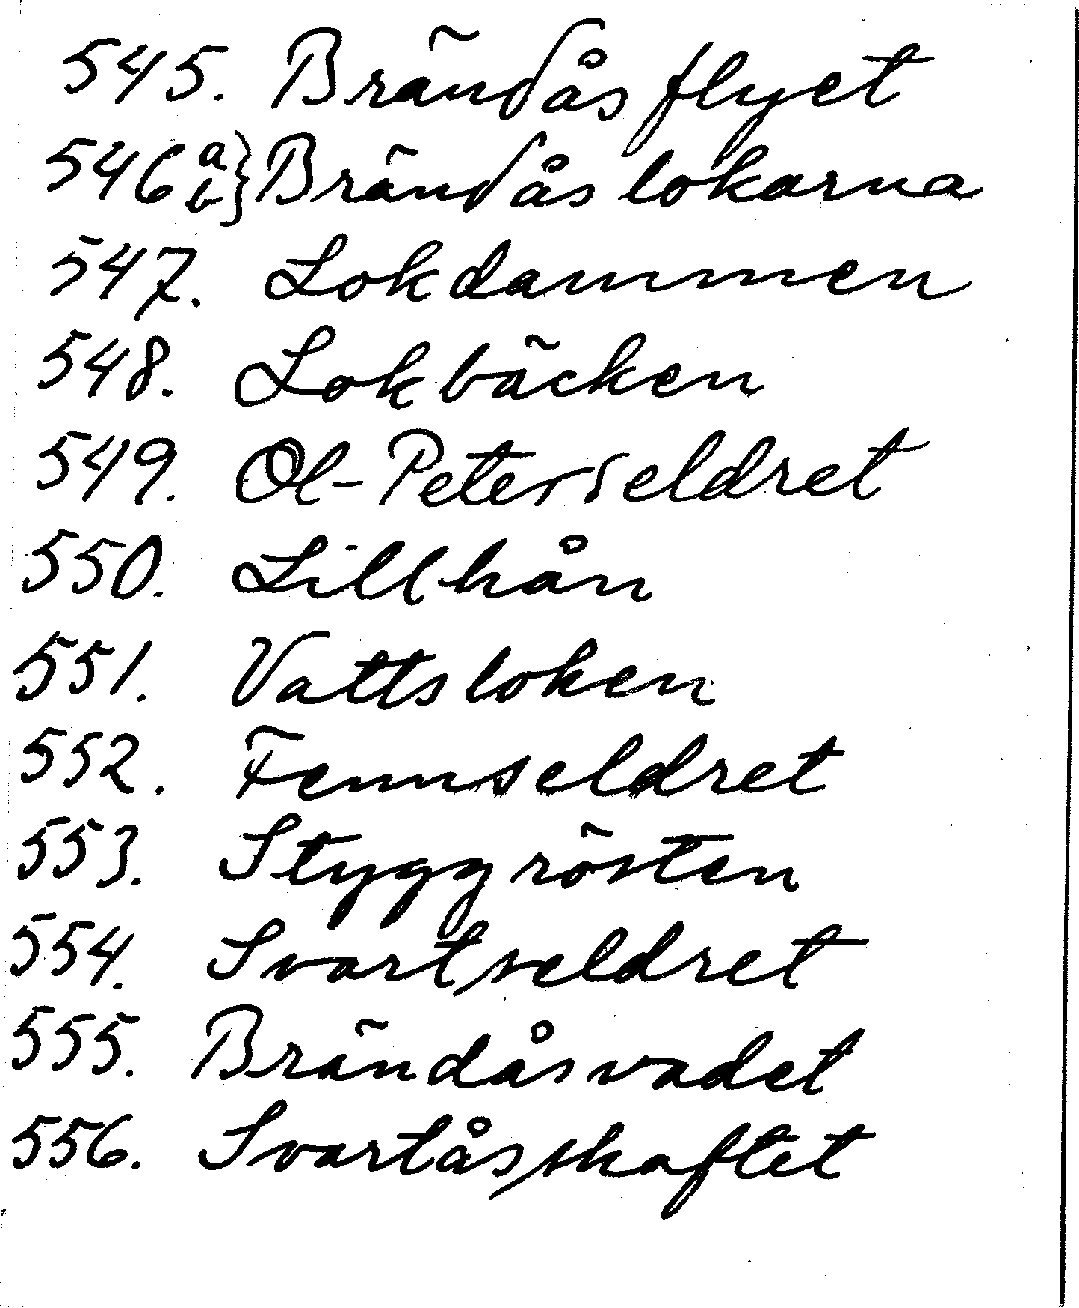 545. Brändåsflyet
546 a b } Brändåslokarna
547. Lokdammen
548. Lokbäcken
549. Ol-Peterseldret
550. Lillhån
551. Vattsloken
552. Femmseldret
553. Styggrösten
554. Svartseldret
555. Brändåsvadet
556. Svartåsskaftet